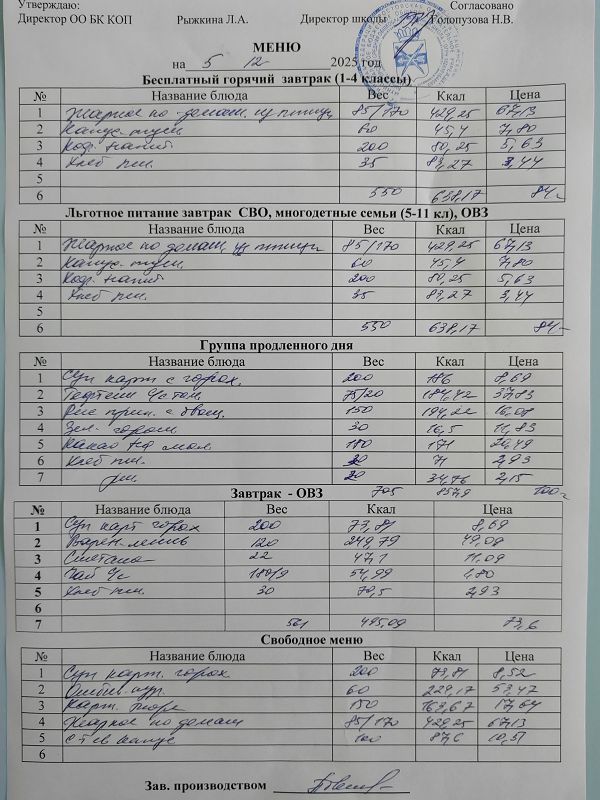 Утверждаю: Согласовано
Директор ОО БК КОП Рыжкина Л.А. Директор школы Голопузова Н.В.
МЕНЮ
на 5 12 2025 год
Бесплатный горячий завтрак (1-4 классы)
№ Название блюда Вес Ккал Цена
1 Жаркое по домаш. из птицы 85/170 429,25 67,13
2 Капус. туш. 60 45,4 7,80
3 Коф. напит 200 80,25 5,63
4 Хлеб пш. 35 83,27 3,44
5
6 550 638,17 84-
Льготное питание завтрак СВО, многодетные семьи (5-11 кл), ОВЗ
№ Название блюда Вес Ккал Цена
1 Жаркое по домаш из птицы 85/170 429,25 67,13
2 Капус. туш. 60 45,4 7,80
3 Коф. напит 200 80,25 5,63
4 Хлеб пш. 35 83,27 3,44
5
6 550 638,17 84-
Группа продленного дня
№ Название блюда Вес Ккал Цена
1 Суп карт с горох. 200 8,69
2 Тефтели с том. 75/20 184,42 37,83
3 Рис прип. с овощ. 150 194,22 16,08
4 Зел. горош. 30 16,5 11,83
5 Какао на мол 180 171 20,49
6 Хлеб пш. 30 71 2,93
7 рж. 20 34,76 2,15
Завтрак - ОВЗ 705 857,9 100-
№ Название блюда Вес Ккал Цена
1 Суп карт горох 200 73,81 8,69
2 Варен. ленив 120 249,79 49,09
3 Сметана 22 47,1 11,09
4 Чай с/с 180/9 54,99 1,80
5 Хлеб пш. 30 70,5 2,93
6
7 561 495,09 73,6
Свободное меню
№ Название блюда Вес Ккал Цена
1 Суп карт. горох 200 73,81 8,52
2 60 229,17 53,47
3 Карт. пюре 150 163,67 17,64
4 Жаркое по домаш 85/170 429,25 67,13
5 капус 100 87,6 10,51
6
Зав. производством